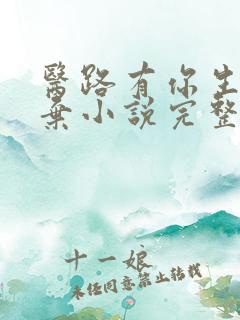 醫路有你生
棄小說完整
十一娘
未经同意禁止转载